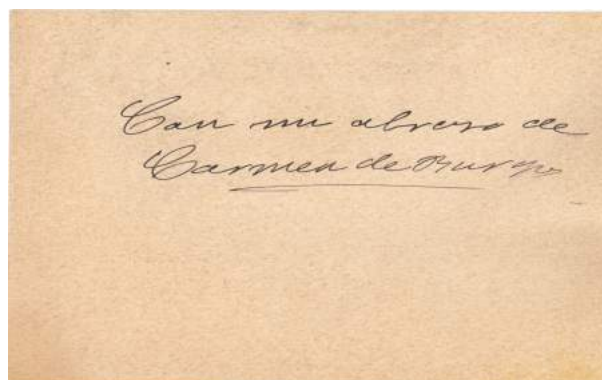 Con un abrazo de
Carmen de Burgos